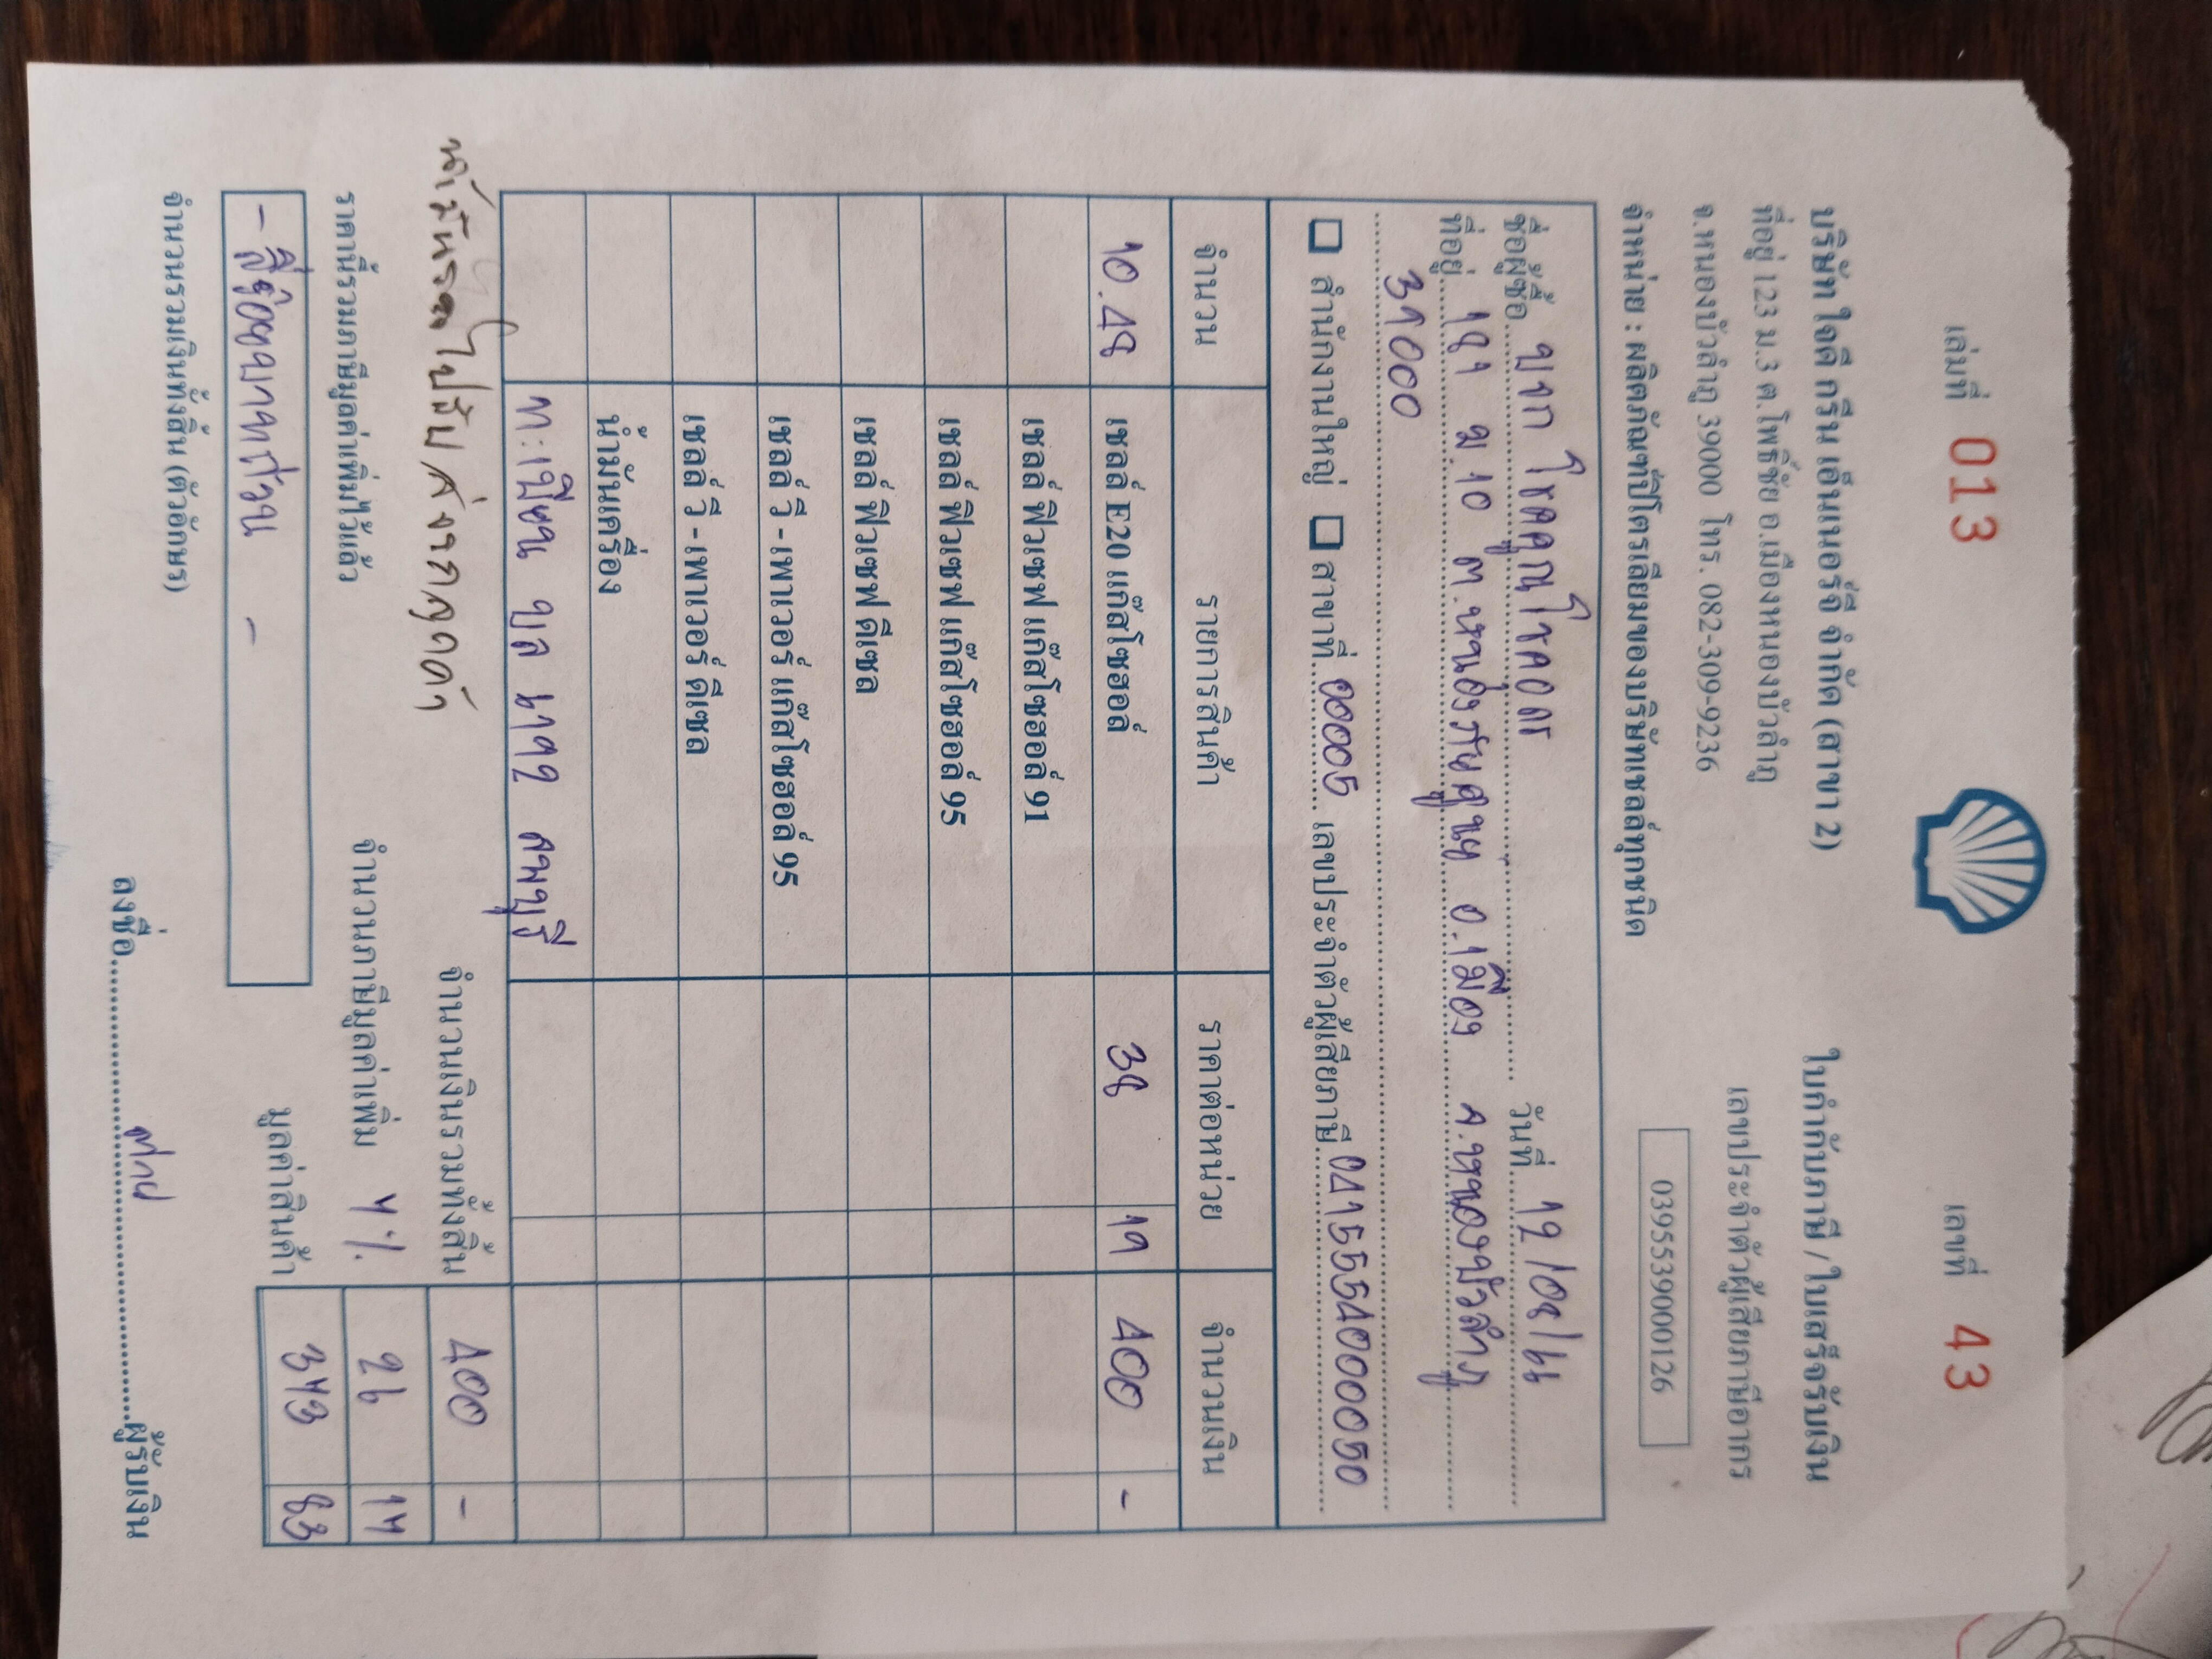 เล่มที่ 013
เลขที่ 43
บริษัท ใจดี กรีน เอ็นเนอร์จี จำกัด (สาขา 2)
ใบกำกับภาษี / ใบเสร็จรับเงิน
ที่อยู่ 123 ม.3 ต.โพธิ์ชัย อ.เมืองหนองบัวลำภู
เลขประจำตัวผู้เสียภาษีอากร
จ.หนองบัวลำภู 39000 โทร. 082-309-9236
0395539000126
จำหน่าย : ผลิตภัณฑ์ปิโตรเลียมของบริษัทเชลล์ทุกชนิด
ชื่อผู้ซื้อ บจก โชคคูณโชค วันที่ 12/08/
ที่อยู่ 181 ม.10 ต.หนองภัยศูนย์ อ.เมือง จ.หนองบัวลำภู
39000
สำนักงานใหญ่ สาขาที่ 00005 เลขประจำตัวผู้เสียภาษี 0415554000050
จำนวน รายการสินค้า ราคาต่อหน่วย จำนวนเงิน
10.48 เชลล์ E20 แก๊สโซฮอล์ 38 19 400 -
เชลล์ ฟิวเซฟ แก๊สโซฮอล์ 91
เชลล์ ฟิวเซฟ แก๊สโซฮอล์ 95
เชลล์ ฟิวเซฟ ดีเซล
เชลล์ วี - เพาเวอร์ แก๊สโซฮอล์ 95
เชลล์ วี - เพาเวอร์ ดีเซล
น้ำมันเครื่อง
ทะเบียน ขูล ลพบุรี
จำนวนเงินรวมทั้งสิ้น 400 -
ราคานี้รวมภาษีมูลค่าเพิ่มไว้แล้ว
จำนวนภาษีมูลค่าเพิ่ม 7% 26 17
- สี่ร้อยบาทถ้วน -
มูลค่าสินค้า 373 83
จำนวนรวมเงินทั้งสิ้น (ตัวอักษร)
ลงชื่อ ผู้รับเงิน